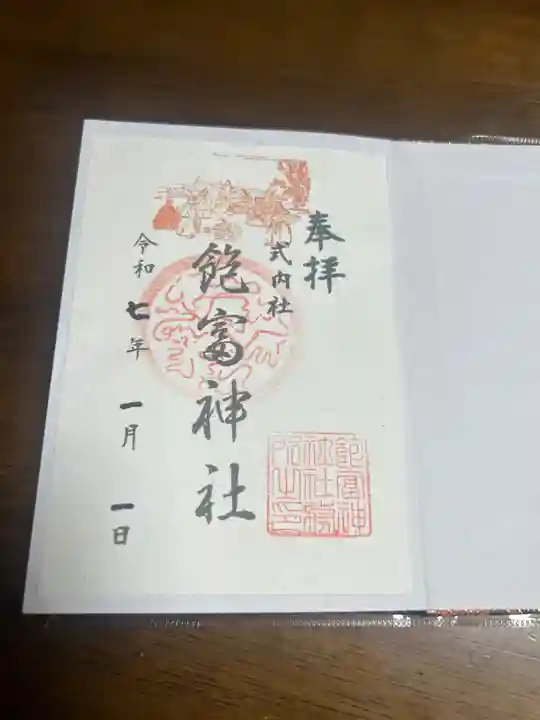 奉拝
式内社
飽富神社
令和七年一月一日
飽富神
社社務
所之印